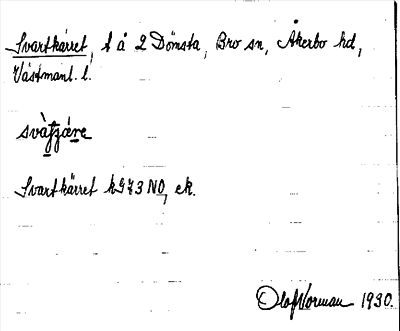 Svartkärret, t å 2 Dömsta, Bro sn, Åkerbo hd,
Västmanl. l.
Svartkärret NO, ek.
Olof Norman 1930.